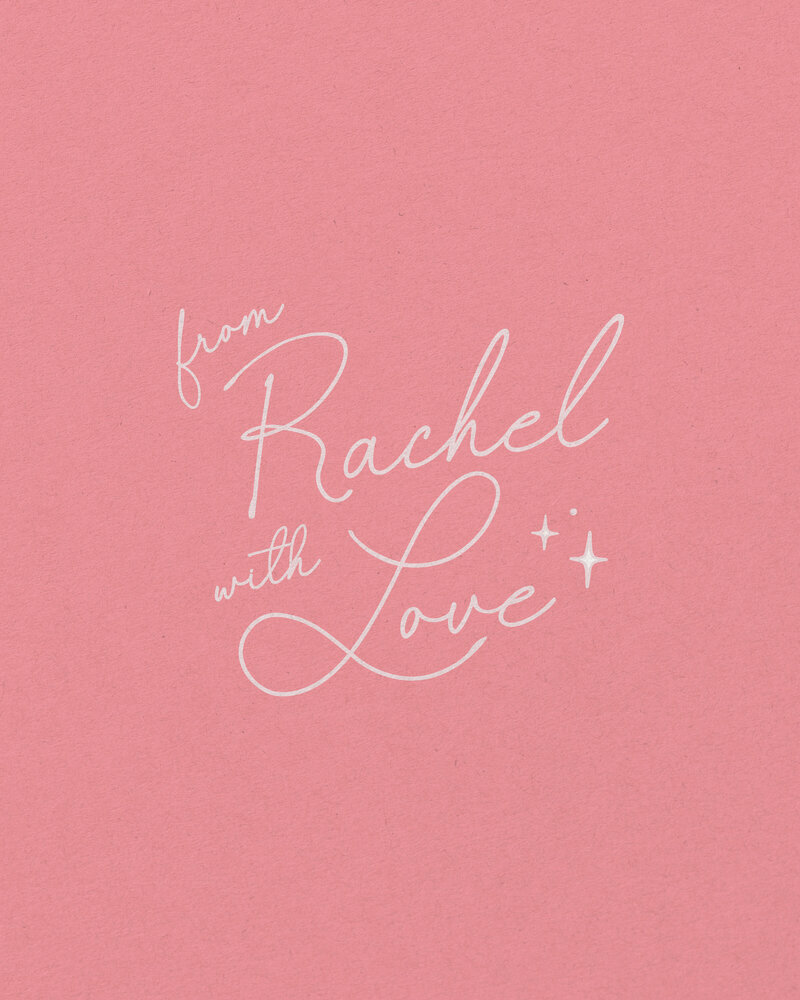 from
Rachel
with
Love